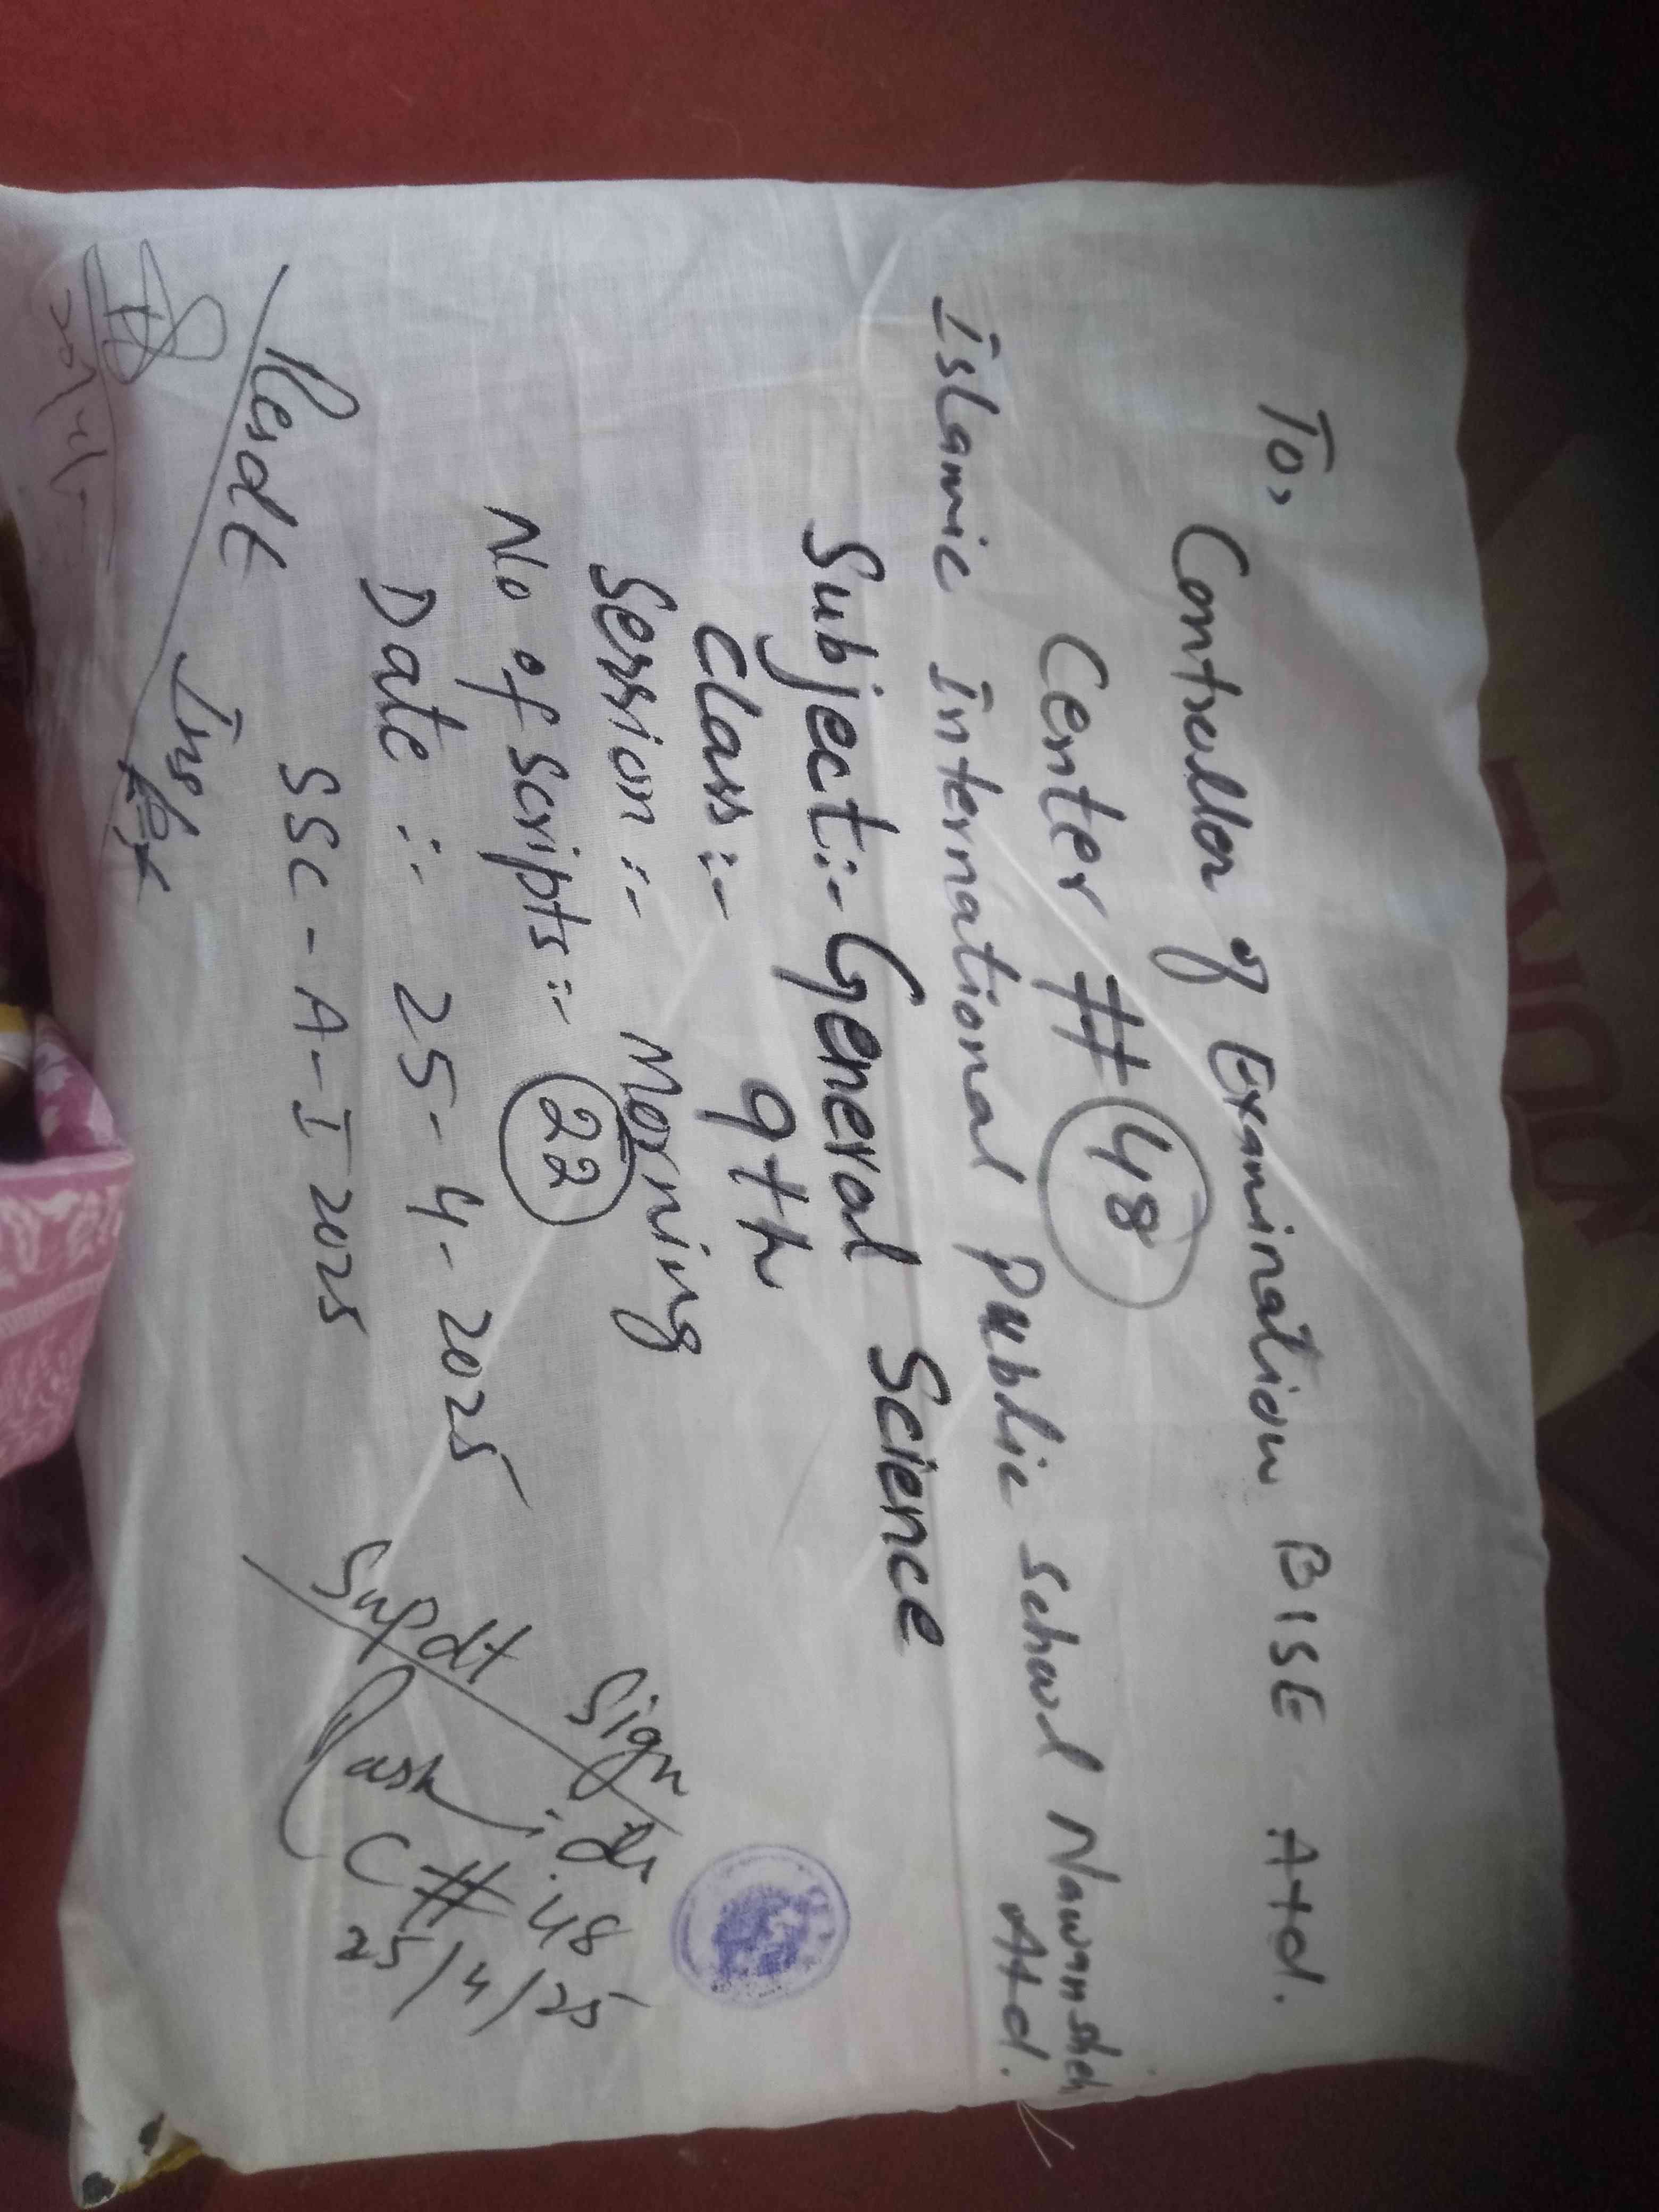 To,
Controller of Examination BISE Atd.
Center # 48
Islamic International Public School Nawansheh
Atd.
Subject:- General Science
Class:- 9th
Session:- Morning
No of Scripts:- 22
Date:- 25-4-2025
SSC-A-I 2025
Resdt Insp
Sign
Supdt
C # 48
25/4/25